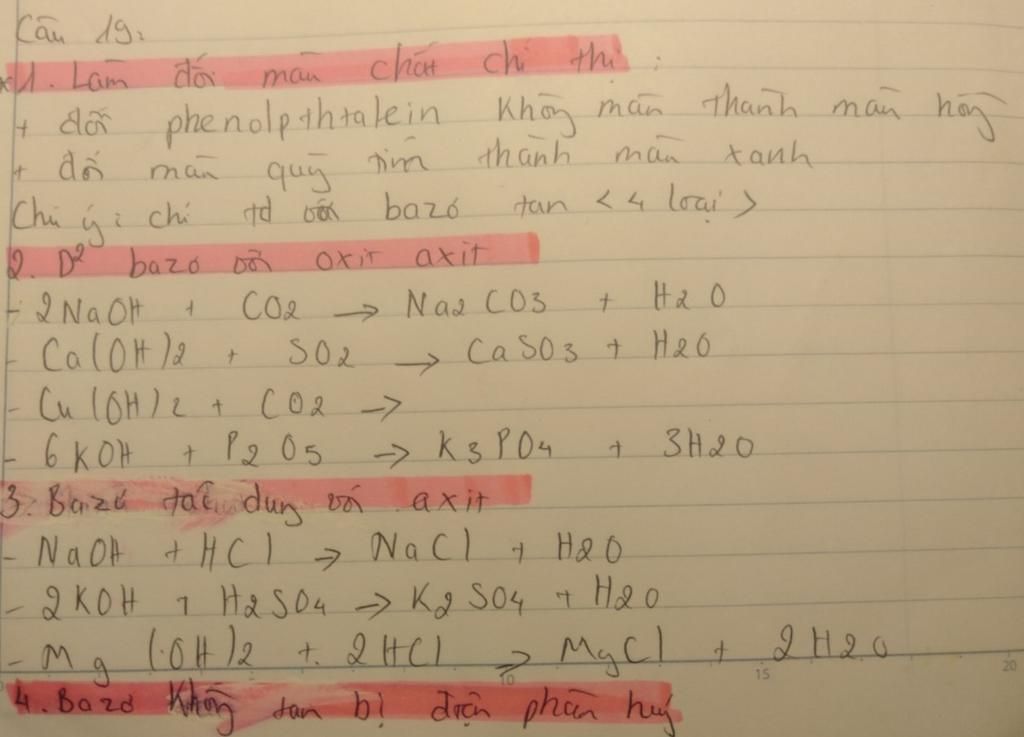 Câu 19:
*1. Làm đổi màu chất chỉ thị:
+ đổi phenolpthtalein không màu thành màu hồng
+ đổi màu quỳ tím thành màu xanh
Chú ý: chỉ td với bazơ tan < 4 loại >
2. D² bazơ với oxit axit
- 2NaOH + CO2 → Na2CO3 + H2O
- Ca(OH)2 + SO2 → CaSO3 + H2O
- Cu(OH)2 + CO2 →
- 6KOH + P2O5 → K3PO4 + 3H2O
3. Bazơ tác dụng với axit
- NaOH + HCl → NaCl + H2O
- 2KOH + H2SO4 → K2SO4 + H2O
- Mg(OH)2 + 2HCl → MgCl + 2H2O
10 15 20
4. Bazơ không tan bị điện phân huỷ